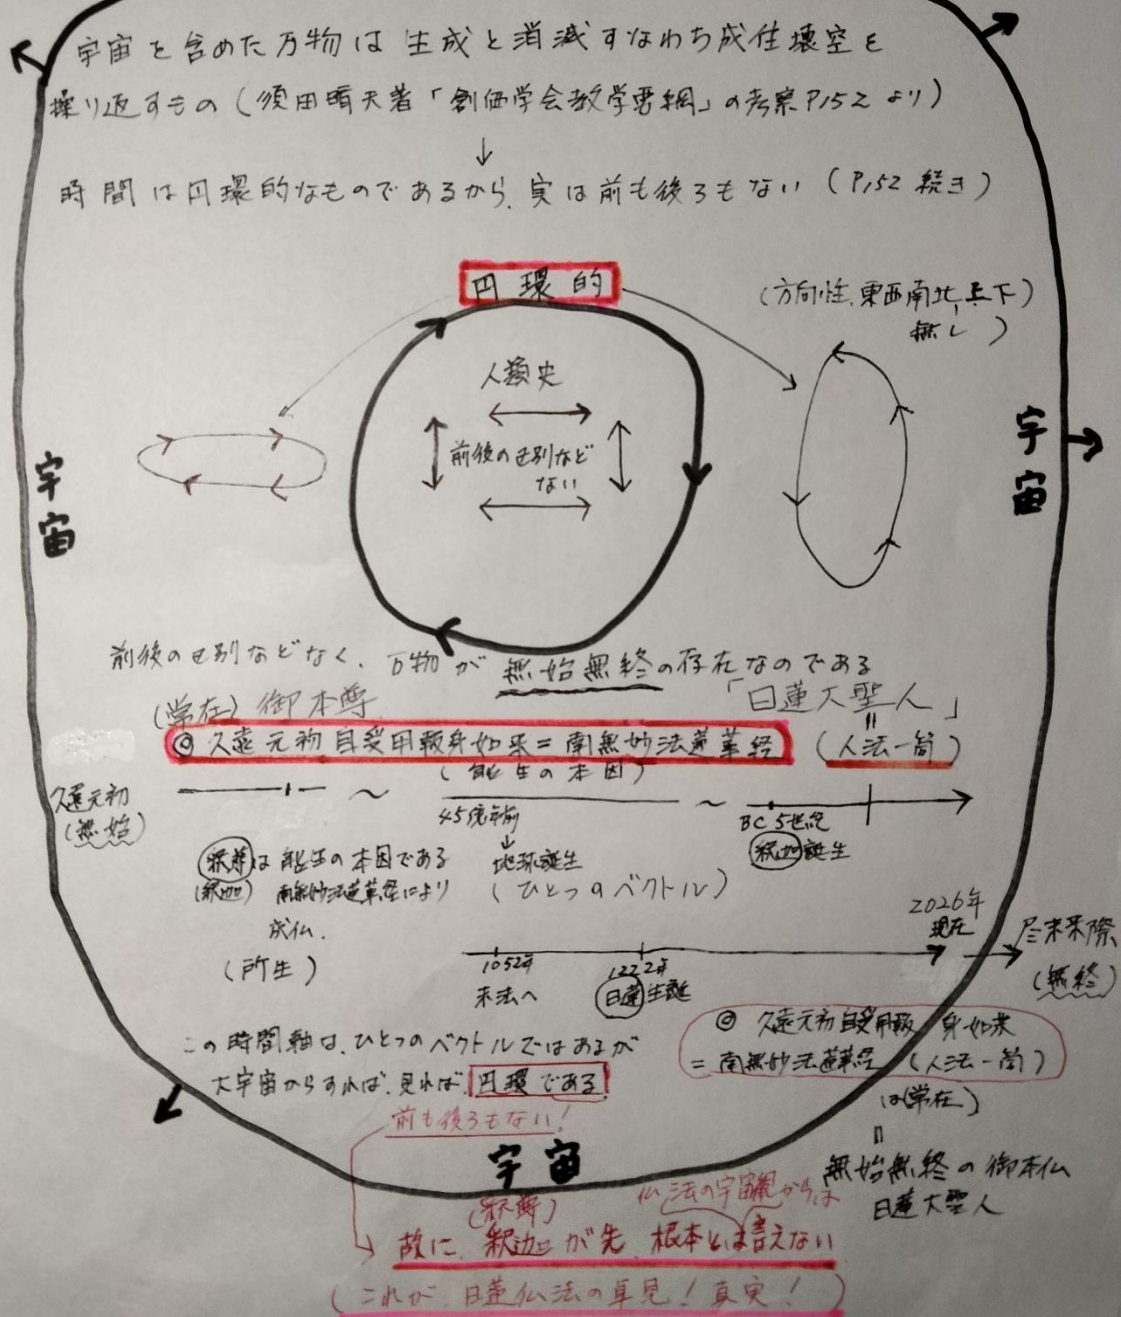 宇宙を含めた万物は生成と消滅すなわち成住壊空を
繰り返すもの(須田晴夫著「創価学会教学要綱」の考察P152より)
↓
時間は円環的なものであるから、実は前も後ろもない(P152続き)
円環的
(方向性、東西南北、上下)
無し)
人類史
前後の区別など
ない
宇宙
宇宙
前後の区別などなく、万物が無始無終の存在なのである
(常在)御本尊
「日蓮大聖人」
=
◎久遠元初自受用報身如来=南無妙法蓮華経
(人法一箇)
(能生の本因)
久遠元初
(無始)
~
~
45億年前
↓
地球誕生
(ひとつのベクトル)
BC5世紀
釈迦誕生
釈尊は能生の本因である
(釈迦)南無妙法蓮華経により
成仏.
(所生)
1052年
末法へ
1222年
日蓮生誕
2026年
現在
尽未来際
(無終)
この時間軸は、ひとつのベクトルではあるが
大宇宙からすれば、見れば、円環である
前も後ろもない!
◎久遠元初自受用報身如来
=南無妙法蓮華経(人法一箇)
は(常在)
=
無始無終の御本仏
日蓮大聖人
宇宙
(釈尊)
仏法の宇宙観からは
故に、釈迦が先、根本とは言えない
(これが、日蓮仏法の卓見!真実!)